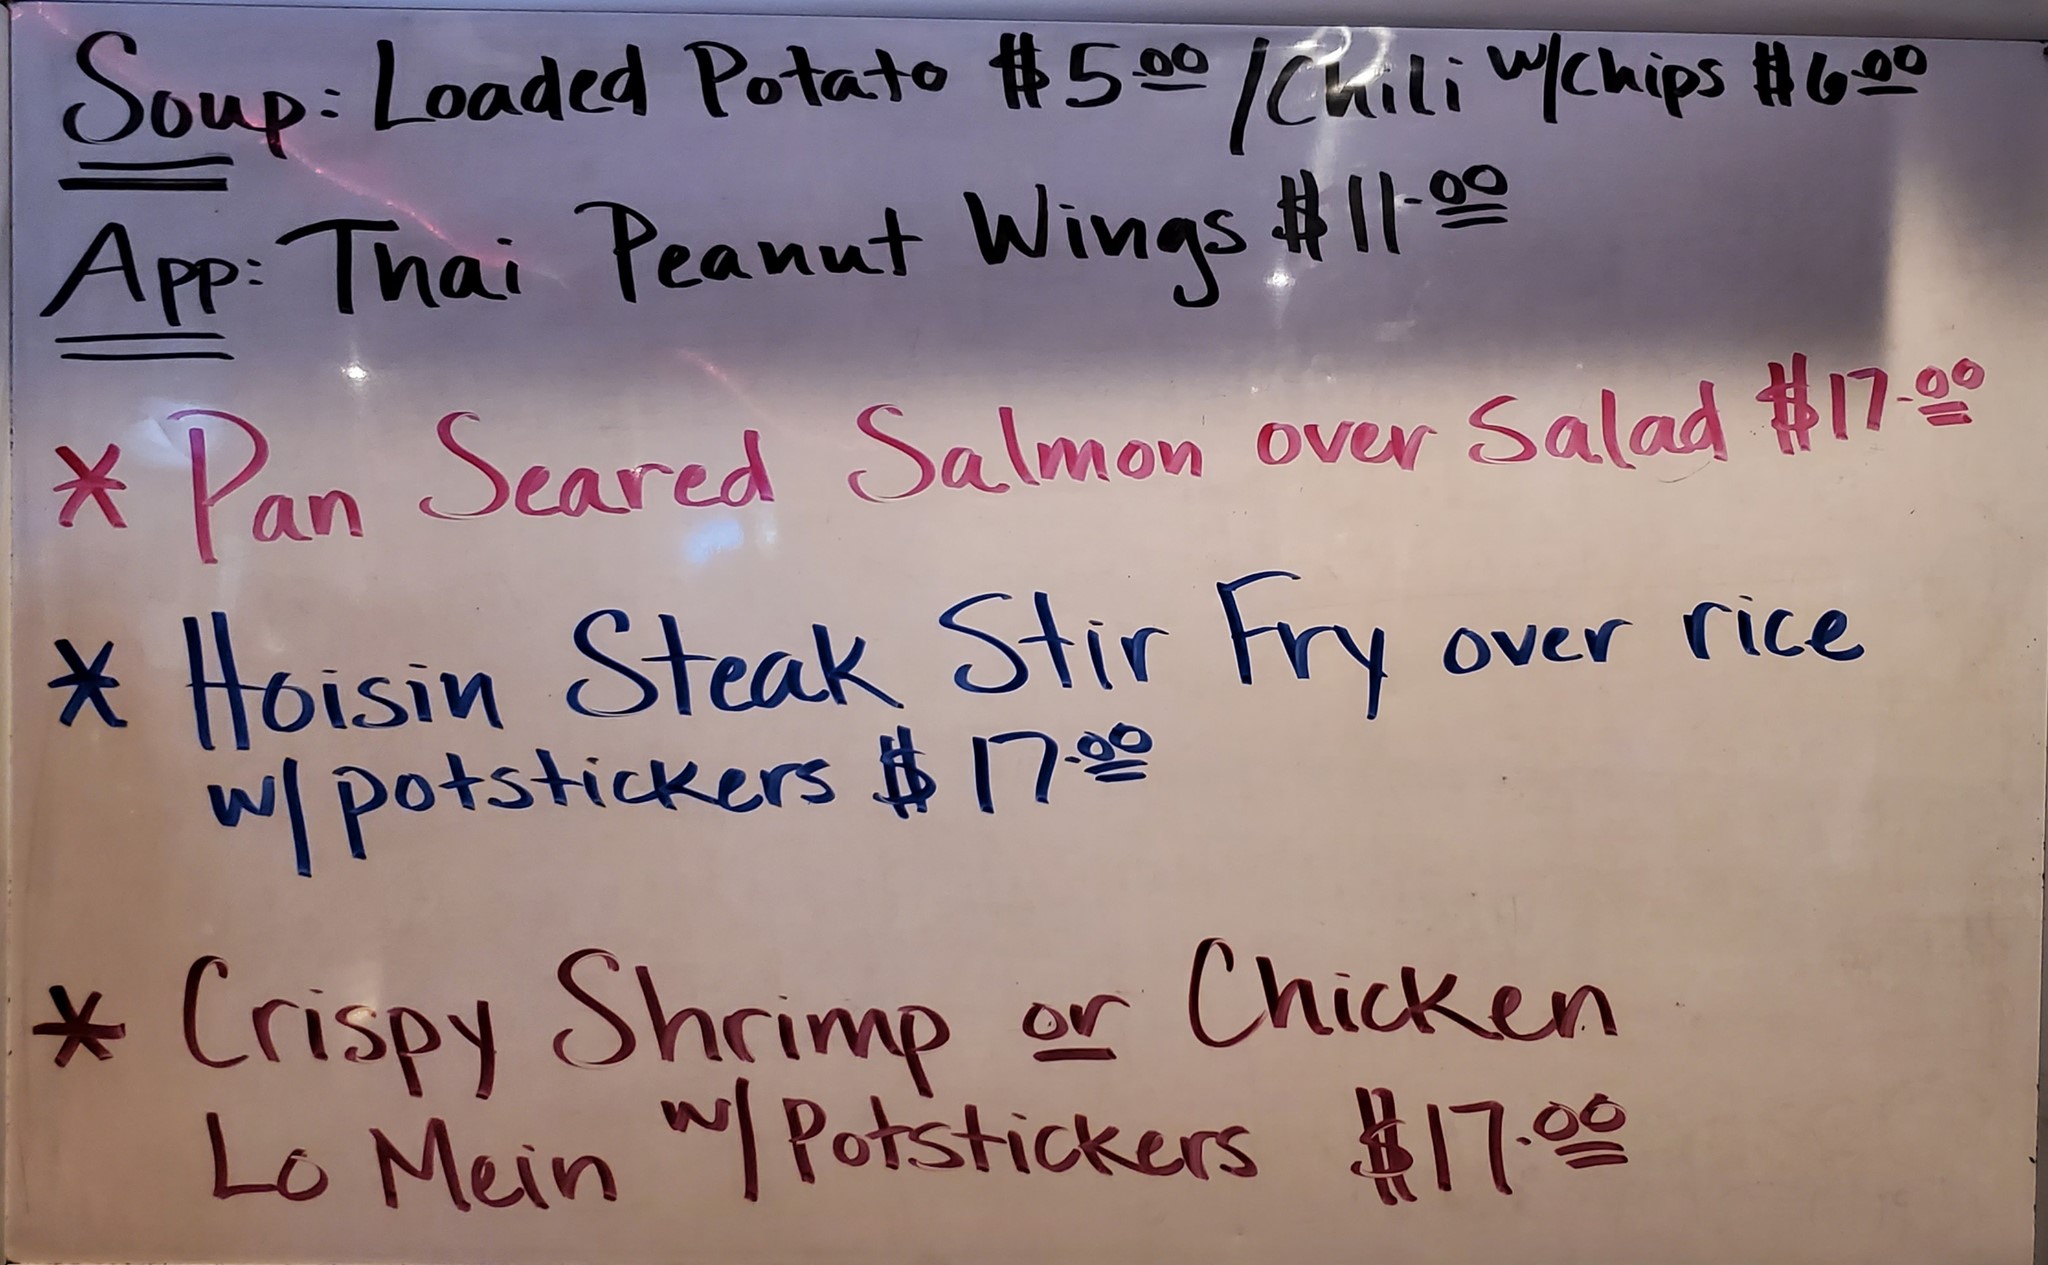 Soup: Loaded Potato $5.00 /Chili w/chips $6.00
App: Thai Peanut Wings $11.00
* Pan Seared Salmon over Salad $17.00
* Hoisin Steak Stir Fry over rice
w/potstickers $17.00
* Crispy Shrimp or Chicken
Lo Mein w/Potstickers $17.00